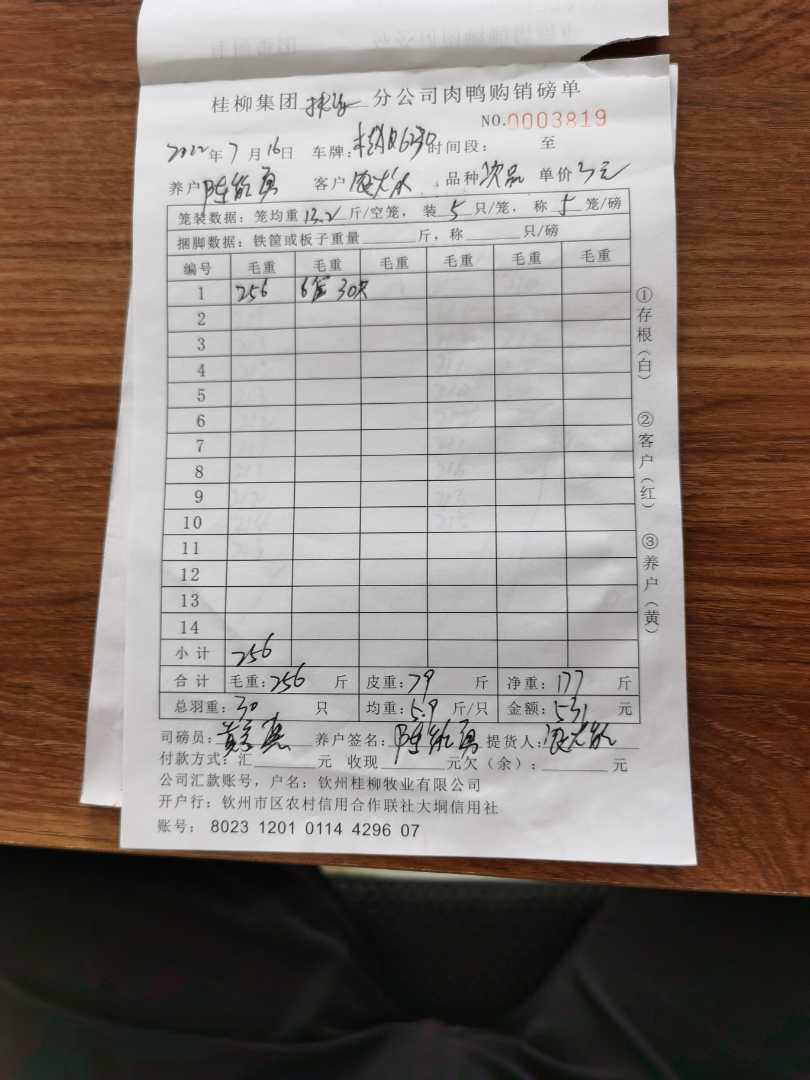 桂柳集团 分公司肉鸭购销磅单
NO.0003819
2022年7月16日 车牌: 时间段: 至
养户 陈 勇 客户 品种 次品 单价 3元
笼装数据:笼均重13.2斤/空笼,装5只/笼,称5笼/磅
捆脚数据:铁筐或板子重量 斤,称 只/磅
编号 毛重 毛重 毛重 毛重 毛重 毛重
1 256 6笼 30只
2
3
4
5
6
7
8
9
10
11
12
13
14
小计 256
合计 毛重:256 斤 皮重:79 斤 净重:177 斤
总羽重:30 只 均重:5.9斤/只 金额:531元
司磅员:黄 养户签名:陈 勇 提货人:
付款方式:汇 元 收现 元欠(余): 元
公司汇款账号,户名:钦州桂柳牧业有限公司
开户行:钦州市区农村信用合作联社大垌信用社
账号: 8023 1201 0114 4296 07
①存根(白)
②客户(红)
③养户(黄)